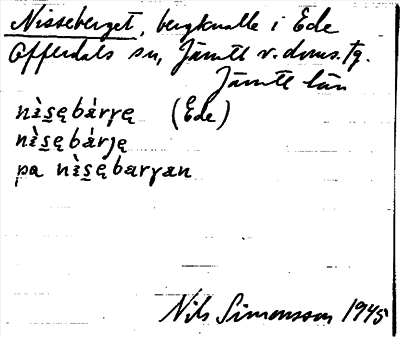 Nisseberget, bergknalle i Ede
Offerdals sn, Jämtl v. doms. tg.
Jämtl län
nìs̲ębárγę (Ede)
nìs̲ębárȷę
pa nìs̲ębarγan
Nils Simonsson 1945